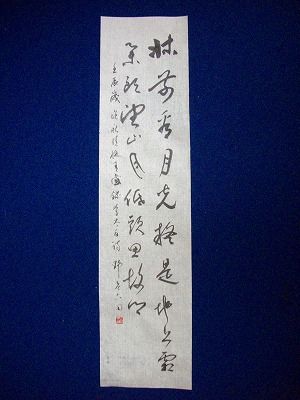 牀前看月光疑是地上霜
舉頭望山月低頭思故鄉
歲 錄李太白詩